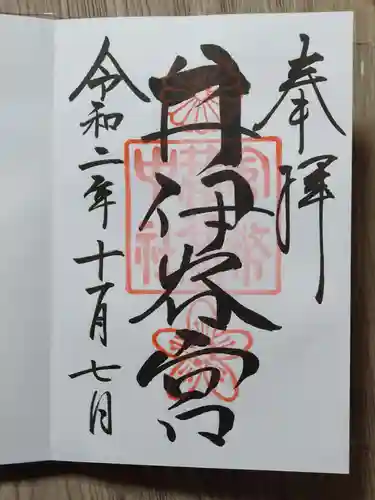 奉拝
井伊谷宮
令和二年十一月七日